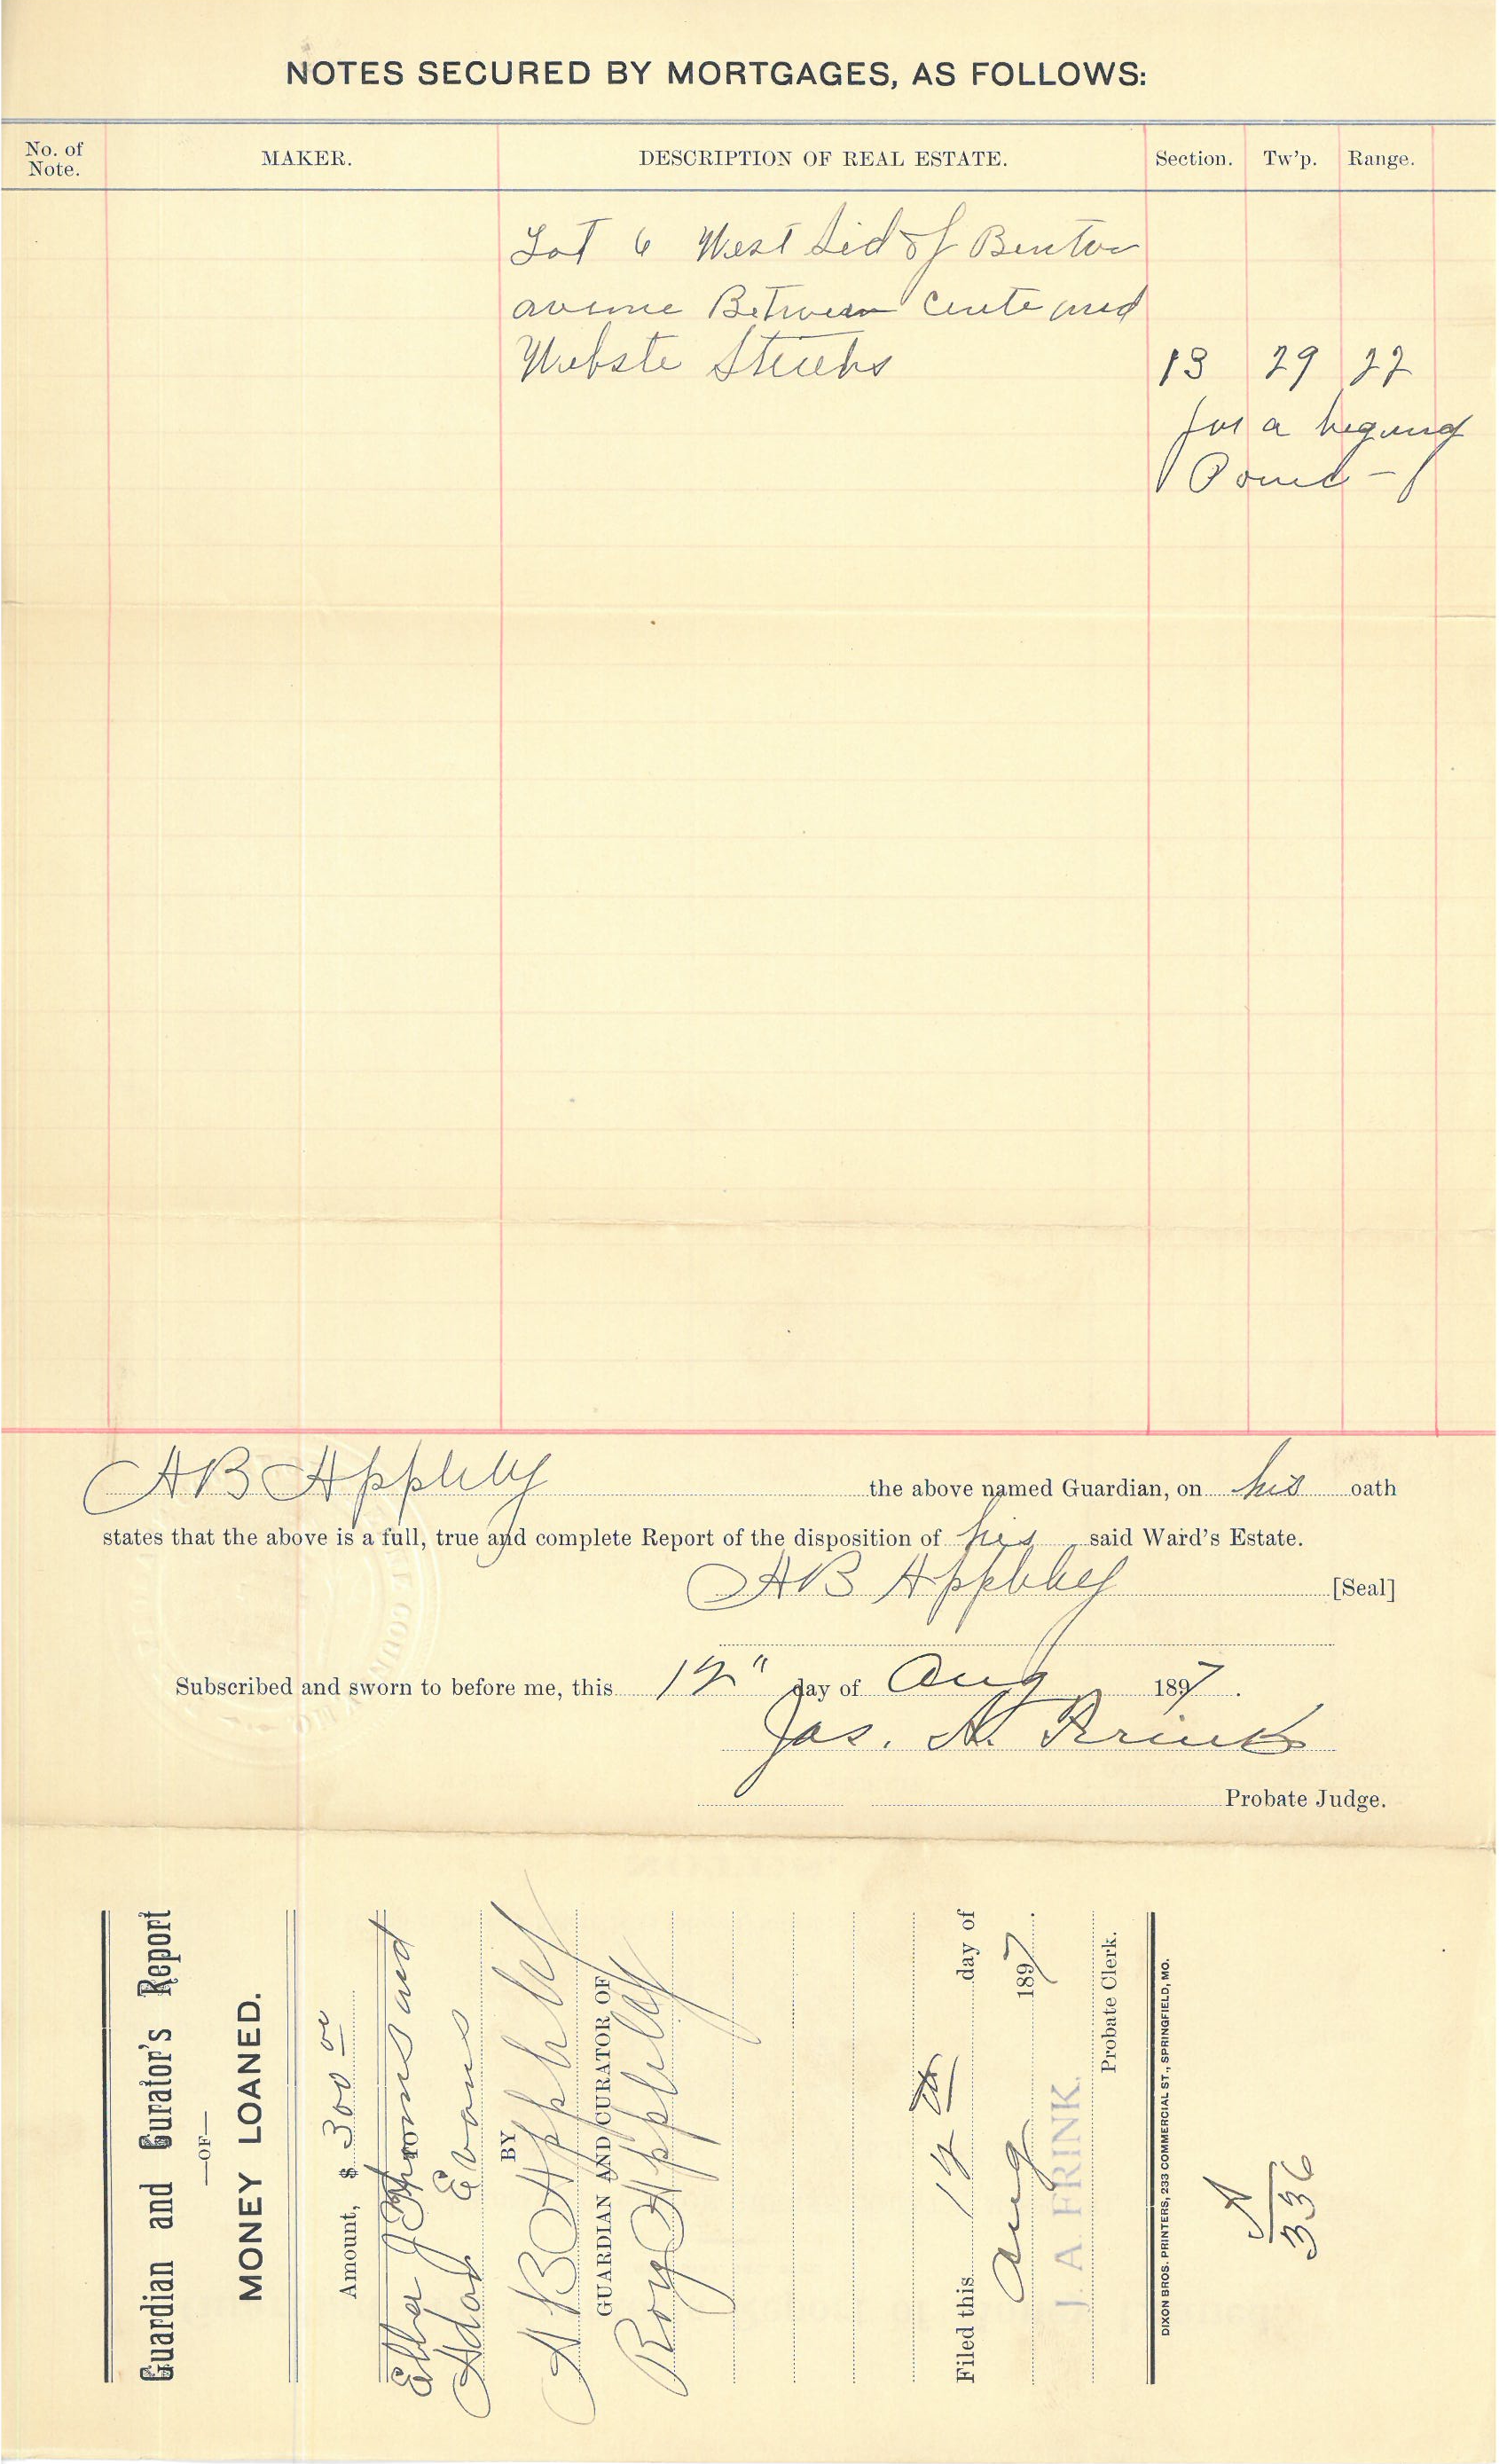 NOTES SECURED BY MORTGAGES, AS FOLLOWS:
No. of Note. MAKER. DESCRIPTION OF REAL ESTATE. Section. Tw'p. Range.
Lot 6 West Sid of Benton
avenue Between Cente and
Webste Streets 13 29 22
for a
A B Appleby the above named Guardian, on his oath
states that the above is a full, true and complete Report of the disposition of his said Ward's Estate.
A B Appleby [Seal]
Subscribed and sworn to before me, this 12" day of Aug 1897.
Jas. A. Frink
Probate Judge.
Guardian and Curator's Report
—OF—
MONEY LOANED.
Amount, $ 300 00
Ella J and
TO
Evans
BY
A B Appleby
GUARDIAN AND CURATOR OF
Roy Appleby
Filed this 12 day of
Aug 1897.
J. A. FRINK.
Probate Clerk.
DIXON BROS. PRINTERS, 233 COMMERCIAL ST., SPRINGFIELD, MO.
A
336